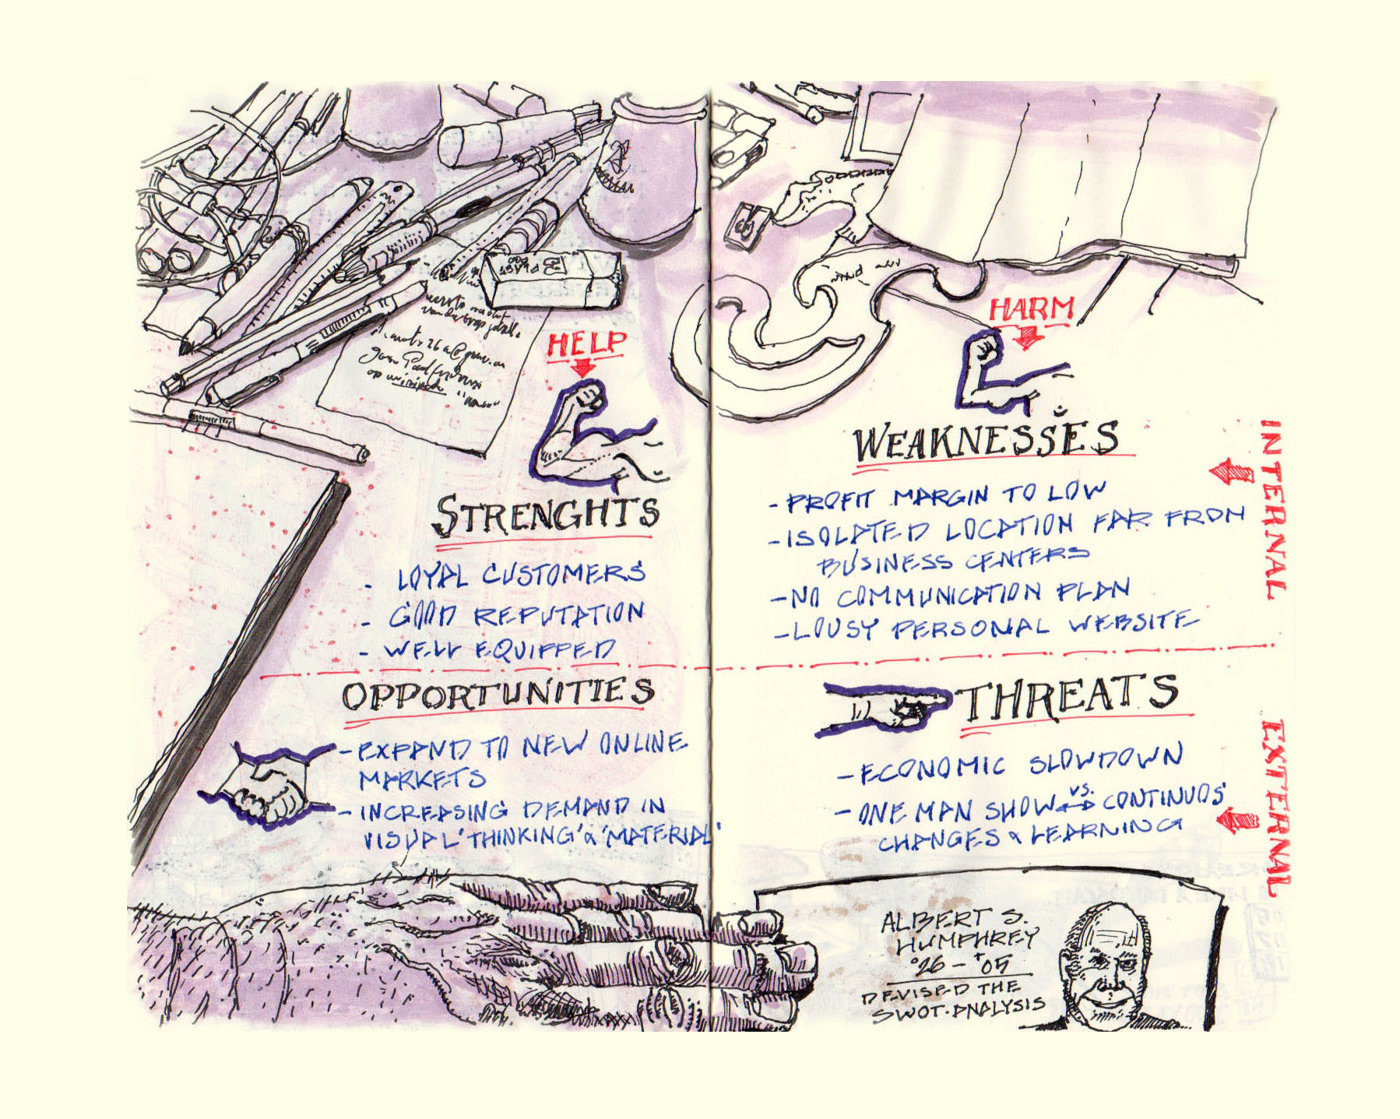 HELP
STRENGHTS
- LOYAL CUSTOMERS
- GOOD REPUTATION
- WELL EQUIPPED
HARM
WEAKNESSES
- PROFIT MARGIN TO LOW
- ISOLATED LOCATION FAR FROM
BUSINESS CENTERS
- NO COMMUNICATION PLAN
- LOUSY PERSONAL WEBSITE
INTERNAL
OPPORTUNITIES
- EXPAND TO NEW ONLINE
MARKETS
- INCREASING DEMAND IN
VISUAL 'THINKING' & 'MATERIAL'
THREATS
- ECONOMIC SLOWDOWN
- ONE MAN SHOW VS. CONTINUOS
CHANGES & LEARNING
EXTERNAL
ALBERT S.
HUMPHREY
°26 - †05
DEVISED THE
SWOT-ANALYSIS